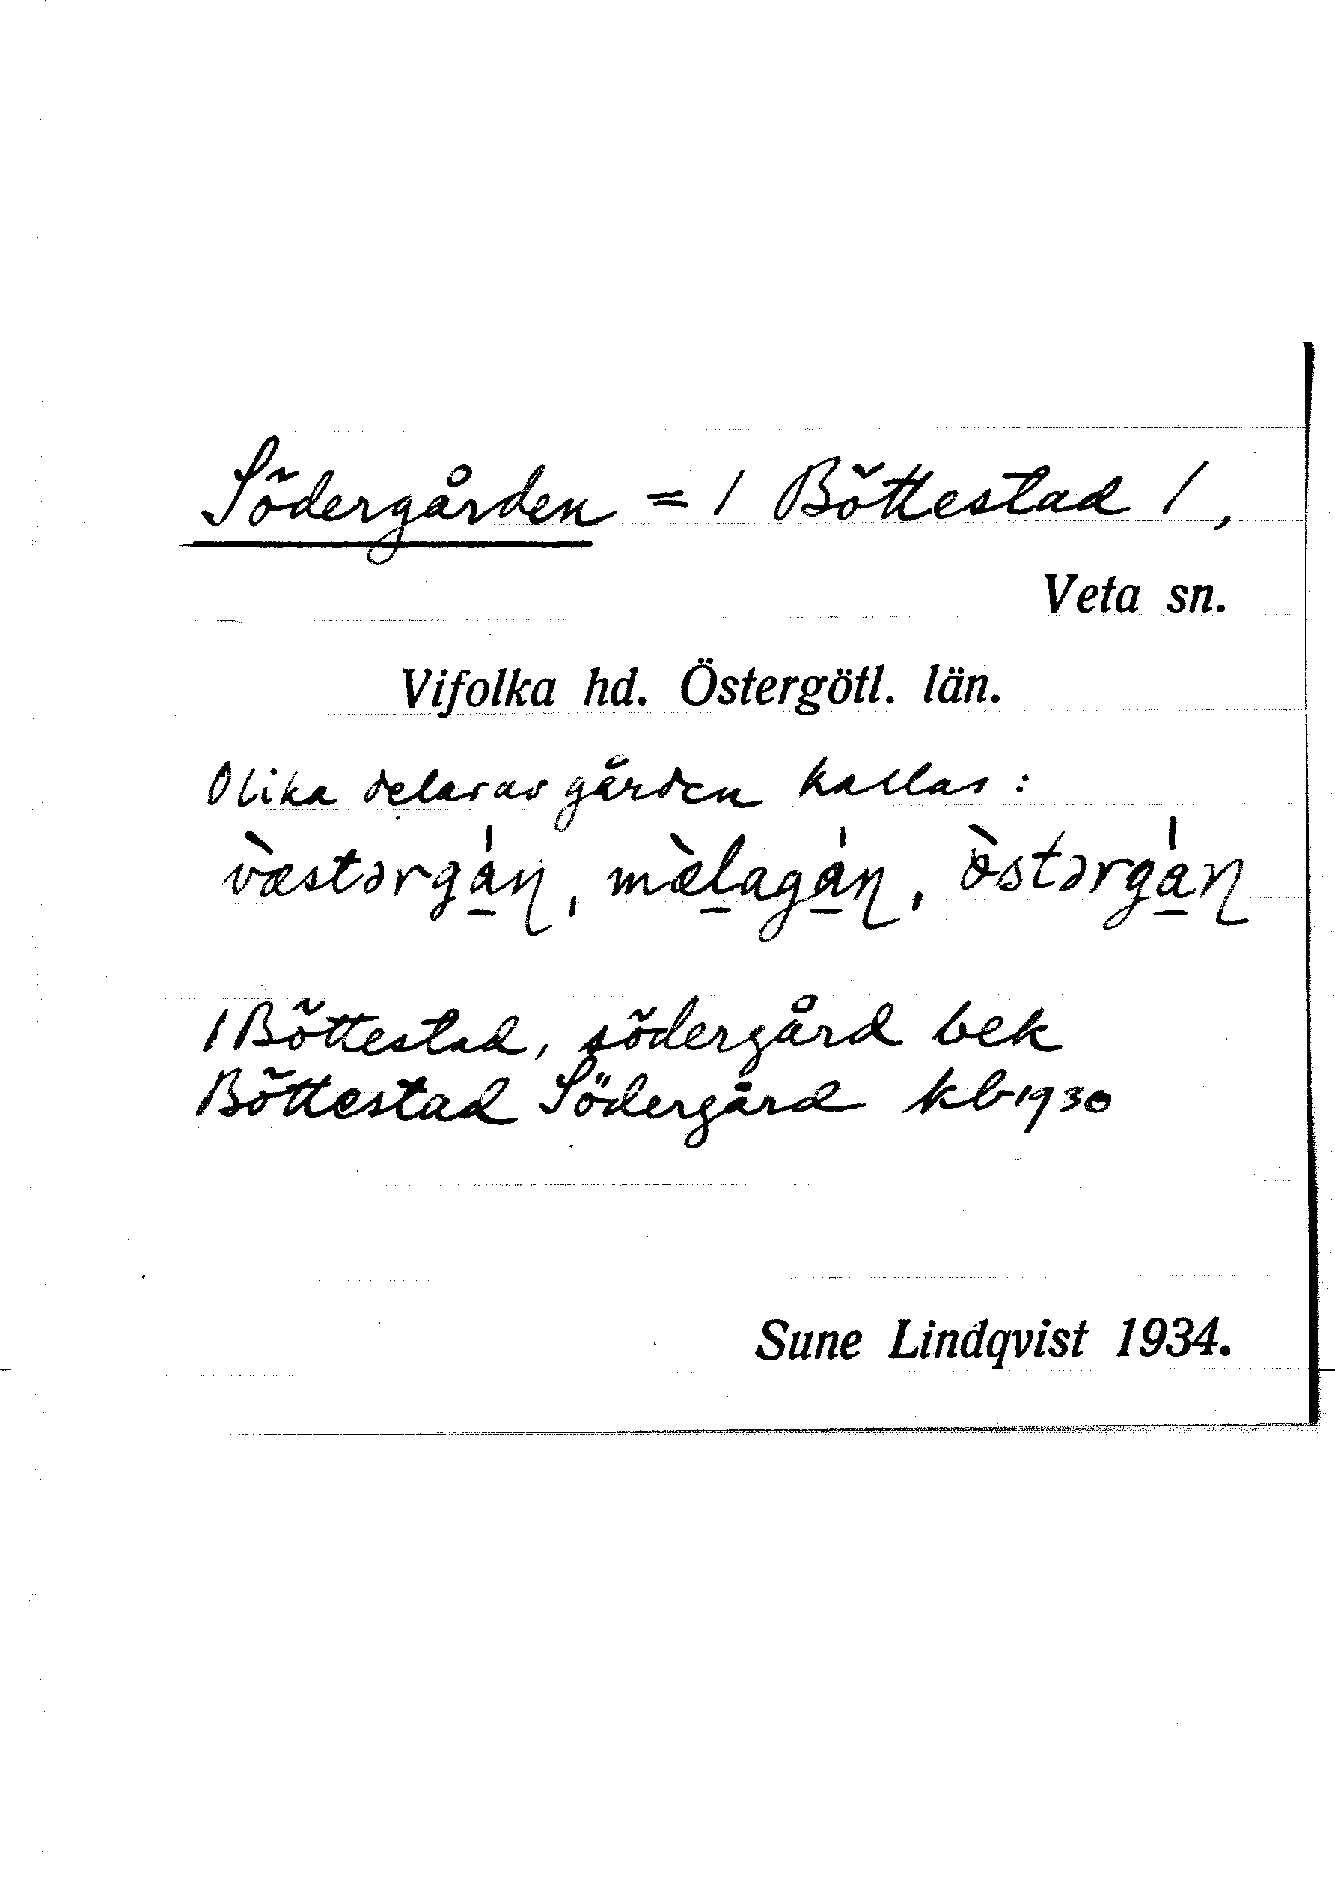 Södergården = 1 Böttestad 1,
Veta sn.
Vifolka hd. Östergötl. län.
Olika delar av gården kallas:
væ̀stərgá̱ɳ, mæ̀ḻagá̱ɳ, ö̀stərgá̱ɳ
1 Böttestad, södergård bek
Böttestad Södergård kb 1930
Sune Lindqvist 1934.